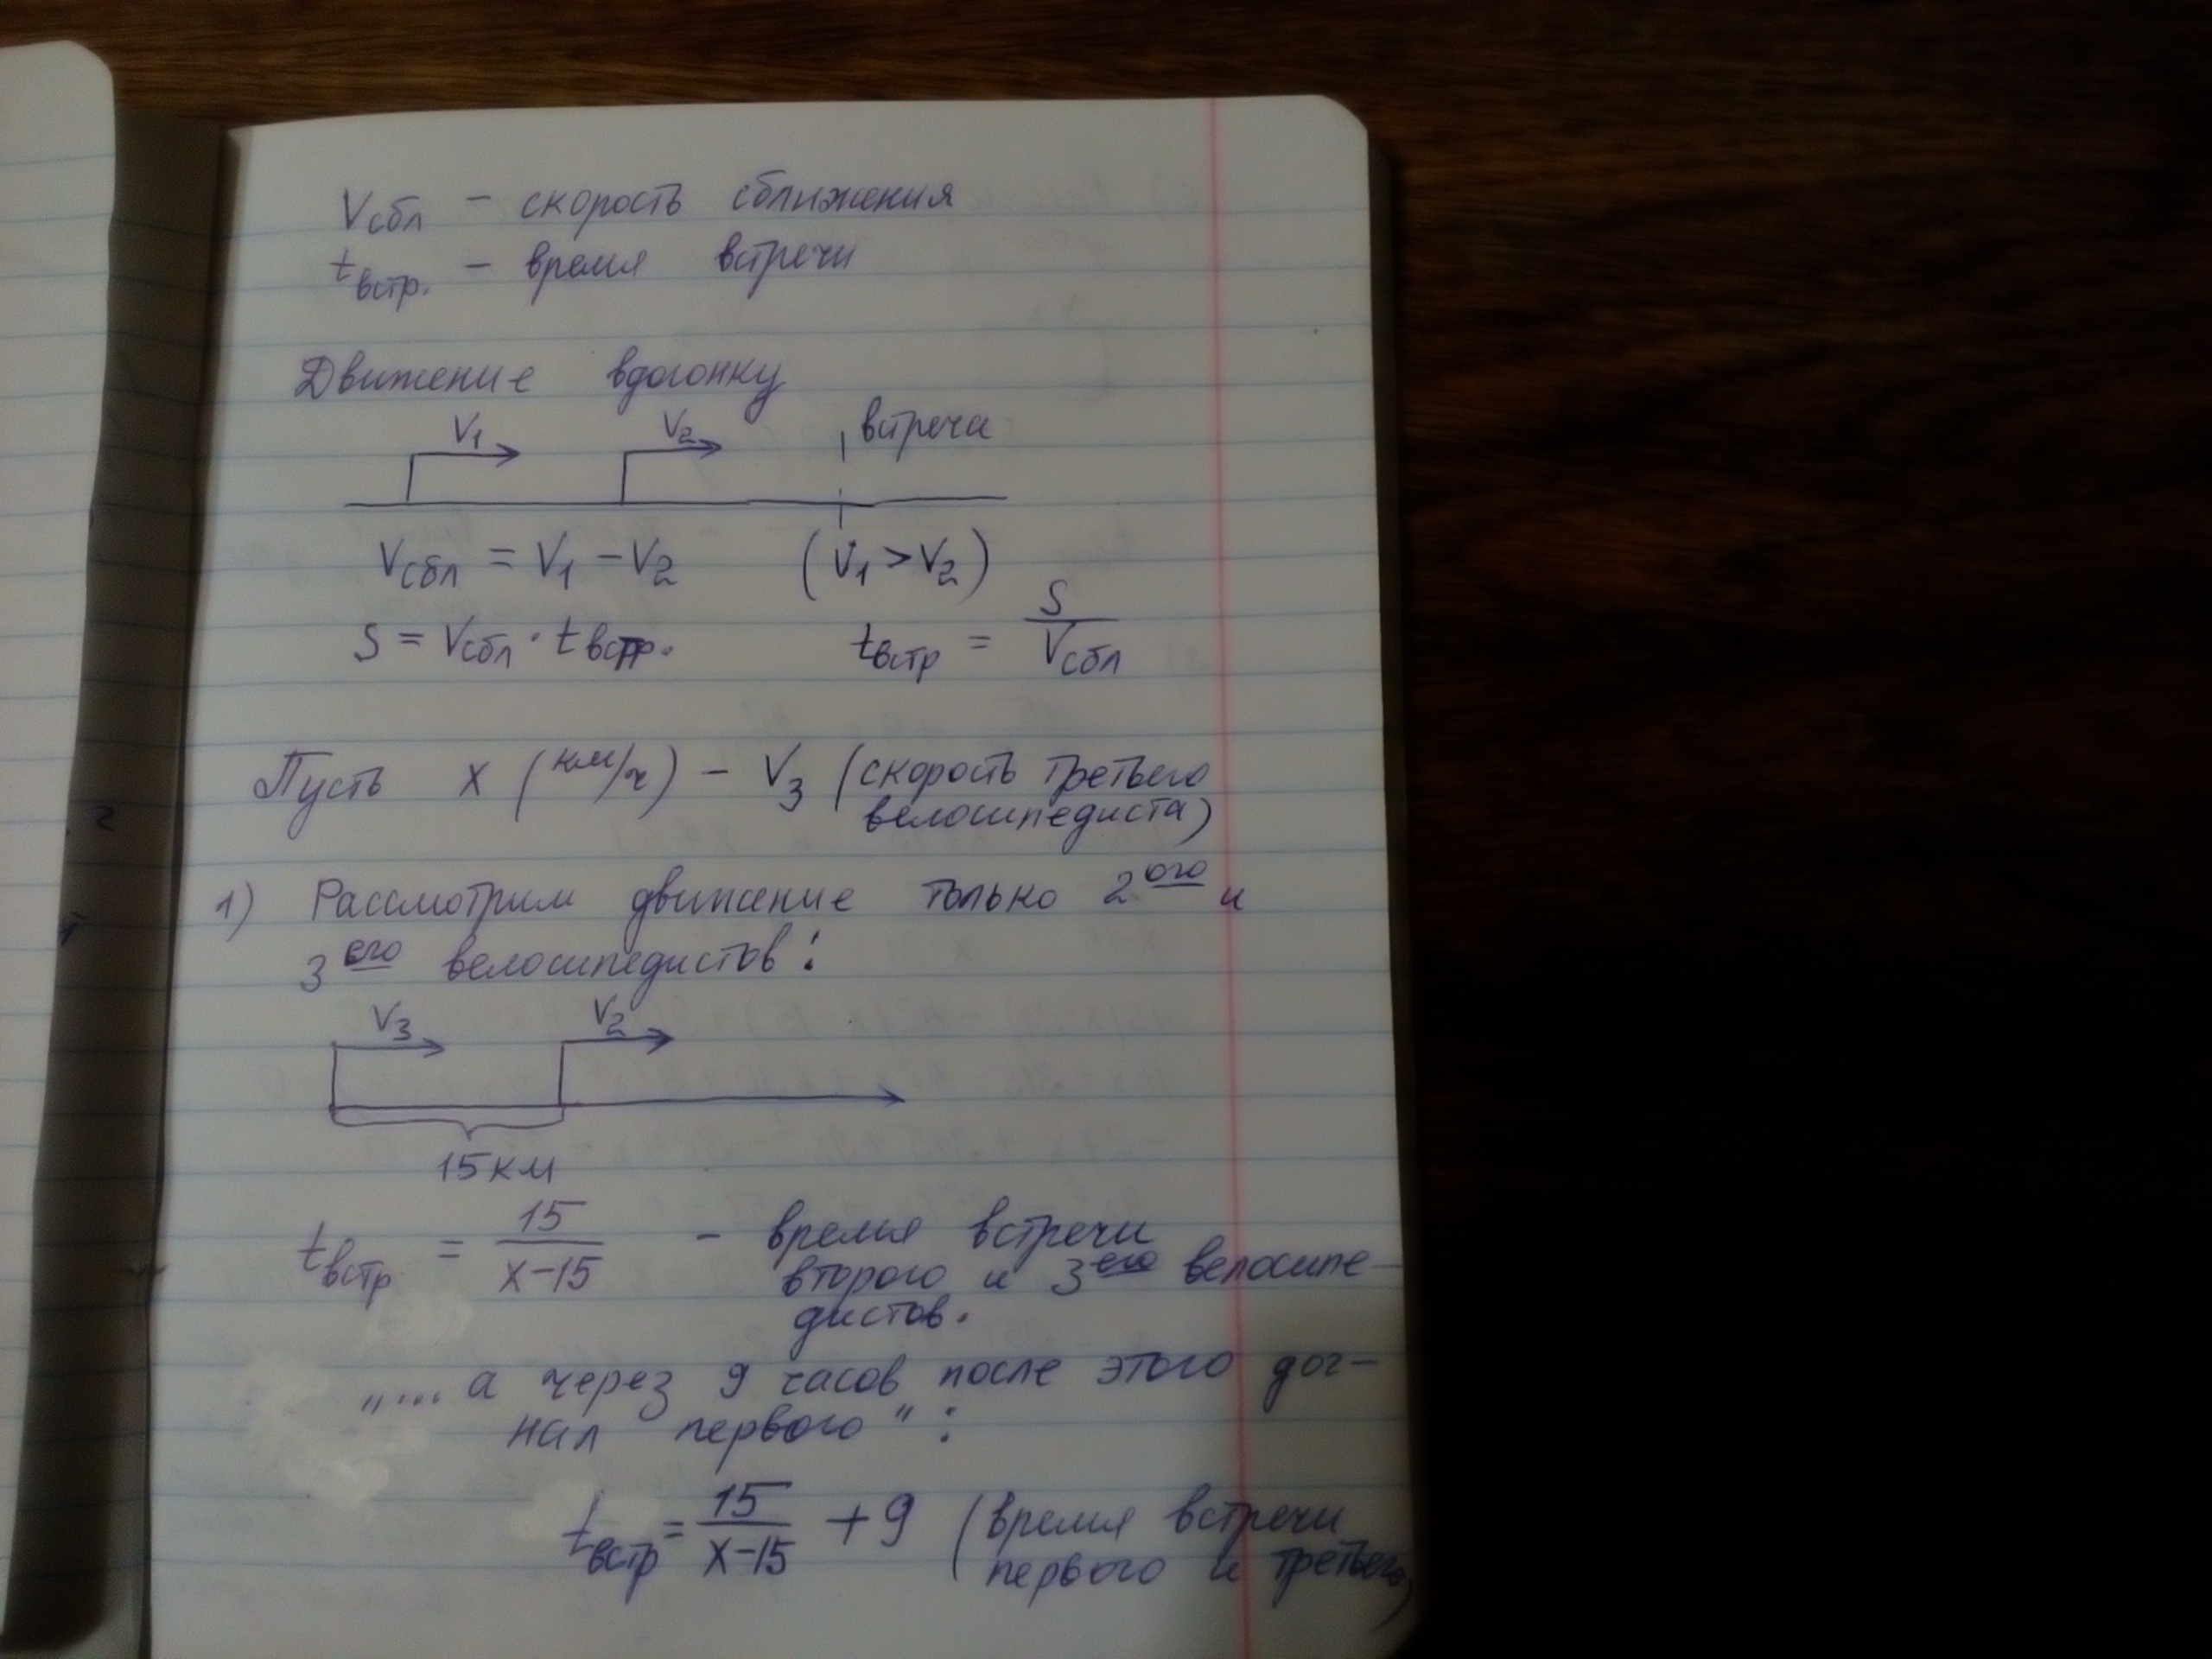 Vсбл – скорость сближения
tвстр. – время встречи
Движение вдогонку
V1 V2 встреча
Vсбл = V1 – V2 (V1 > V2)
S = Vсбл · tвстр. tвстр = S/Vсбл
Пусть x (км/ч) – V3 (скорость третьего
велосипедиста)
1) Рассмотрим движение только 2ого и
3его велосипедистов:
V3 V2
15 км
tвстр = 15/(x–15) – время встречи
второго и 3его велосипе–
дистов.
„.... а через 9 часов после этого дог–
нал первого“:
tвстр = 15/(x–15) + 9 (время встречи
первого и третьего)